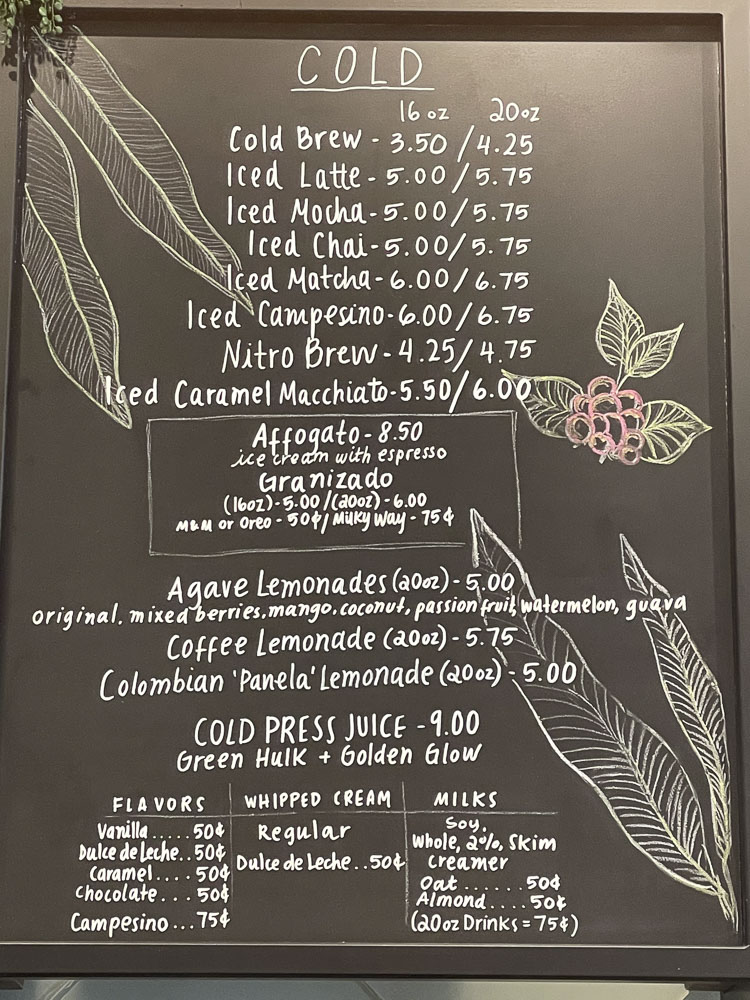 COLD
16 oz 20oz
Cold Brew - 3.50 / 4.25
Iced Latte - 5.00 / 5.75
Iced Mocha - 5.00 / 5.75
Iced Chai - 5.00 / 5.75
Iced Matcha - 6.00 / 6.75
Iced Campesino - 6.00 / 6.75
Nitro Brew - 4.25 / 4.75
Iced Caramel Macchiato - 5.50 / 6.00
Affogato - 8.50
ice cream with espresso
Granizado
(16oz) - 5.00 / (20oz) - 6.00
M&M or Oreo - 50¢ / Milky Way - 75¢
Agave Lemonades (20oz) - 5.00
original, mixed berries, mango, coconut, passion fruit, watermelon, guava
Coffee Lemonade (20oz) - 5.75
Colombian 'Panela' Lemonade (20oz) - 5.00
COLD PRESS JUICE - 9.00
Green Hulk + Golden Glow
FLAVORS
Vanilla ..... 50¢
Dulce de Leche .. 50¢
Caramel .... 50¢
Chocolate ... 50¢
Campesino ... 75¢
WHIPPED CREAM
Regular
Dulce de Leche .. 50¢
MILKS
Soy,
Whole, 2%, Skim
Creamer
Oat ....... 50¢
Almond .... 50¢
(20oz Drinks = 75¢)